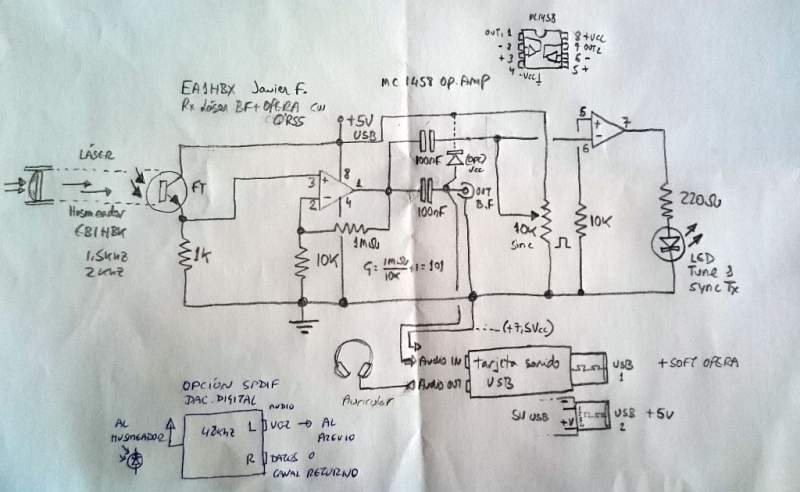 MC1458
OUT1 1
8 +VCC
- 2
7 OUT2
+ 3
6 -
4
5 +
-VCC
EA1HBX Javier F.
Rx Láser BF + OPERA CW
QRSS
MC 1458 OP. AMP
+5V
USB
LÁSER
FT
Husmeador
EB1HBK
1,5KHz
2KHz
1K
3
+
8
1
2
-
4
1MΩ
10K
G = 1MΩ/10K + 1 = 101
100nF
100nF
(OPC)
VCC
OUT
B.F
10K
Sinc
5
+
7
6
-
10K
220Ω
LED
Tune &
Sync Tx
(+7,5VCC)
AUDIO IN
AUDIO OUT
tarjeta sonido
USB
USB
1
+ SOFT OPERA
Auricular
5V USB
-
+V
USB
2
+5V
OPCIÓN SPDIF
DAC. DIGITAL
AUDIO
AL
HUSMEADOR
L
VOZ → AL
R
DATOS O
CANAL RETORNO